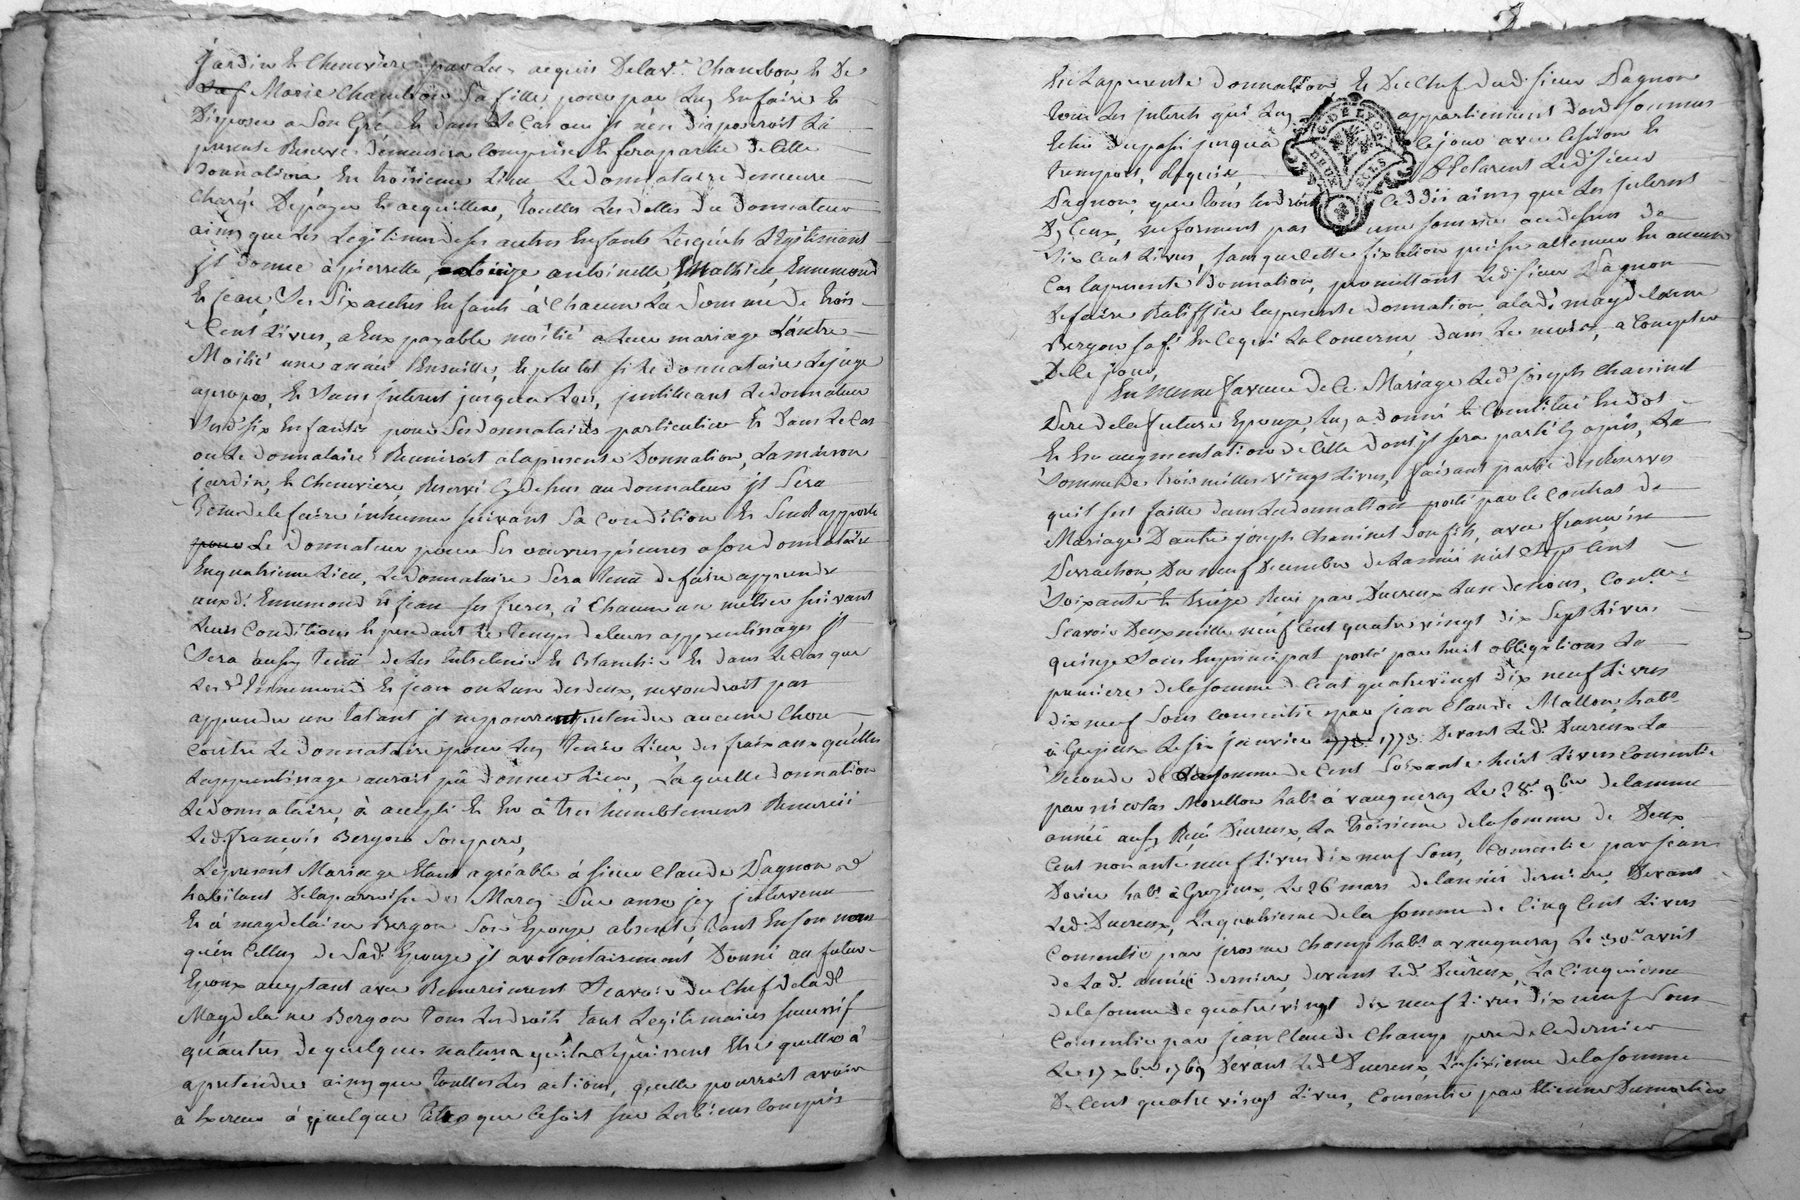 jardin & Cheneviere par luy acquis de la v.e Chambon, & de
Marie Chambon sa fille, pour par luy en faire &
disposer a son Gré & dans le Cas ou jl n'en disposeroit la
presente Reserve demeurera Comprise & fera partie de Cette
donnation En troisieme Lieu le donnataire demeure
Chargé de payer & acquitter, touttes les dettes du donnateur
ainsy que les Legitimes de ses autres Enfants lesquels Legitimant
jl donne à pierrette, antoinette, Mathieu, Ennemond
& jean, ses six autres Enfants à Chacun la Somme de trois
Cent Livres, a Eux payable moitié a leur mariage L'autre
Moitié une année Ensuitte, & plutot si le donnataire le juge
apropos, & sans jnterest jusqu'a lors, justituant le donnateur
ses d. six Enfants pour ses donnataires particulier & dans le Cas
ou le donnataire Reuniroit a la presente donnation, la maison
jardin, & Cheneviere Reservé Cy dessus au donnateur jl sera
tenu de le faire inhumer suivant sa condition &
le donnateur pour ses oeuvres pieuses a son donnataire
En quatrieme Lieu, le donnataire sera tenu de faire apprendre
aux d. Ennemond & jean ses freres, à Chacun un métier suivant
leurs Conditions & pendant le temps de leurs apprentissages jl
sera aussy tenu de les Entretenir & Blanchir & dans le Cas que
les d. Ennemond & jean ou l'un des deux, ne voudroit pas
apprendre un talent jl ne pourront pretendre aucune chose
contre le donnataire pour luy tenir Lieu des fraix auxquelles
l'apprentissage auroit pû donner Lieu, laquelle donnation
le donnataire, à accepté & En à tres humblement Remercié
le d. françois Bergon son pere,
Le present Mariage Etant agréable à sieur Claude Dagnon
habitant de la parroisse de Marcy sur anse jcy jntervenu
& à magdelaine Bergon son Epouse absente, tant En son nom
qu'en Celluy de sa d. Epouse jl a volontairement donné au futur
Epoux acceptant avec Remerciment Scavoir du Chef de la d.
Magdelaine Bergon tous les droits tant Legitimaires
qu'autres de quelques nature qu'ils puissent Etre quelle à
a pretendre ainsy que touttes les actions, quelle pourroit avoir
à Exercer à quelque titre que ce soit sur les biens Compris
En la presente donnation, & du Chef du d. sieur Dagnon
tous les jnterets qui luy appartiennent des d. sommes
Echu du passé jusqu'à Ce jour avec Cession &
transport, Requis, declarant le d. sieur
Dagnon, que tous les droits Ceddés ainsy que les jnterets
D'yCeux, ne forment pas une somme au dessus de
six Cent Livres, sans que Cette fixation puisse attenuer En aucun
Cas la presente Donnation, promettant le d. sieur Dagnon
de faire Ratiffier la presente donnation a la d. magdelaine
Bergon sa f.e En Ce qui la Concerne dans le mois, a Compter
de Ce jour,
En meme faveur de Ce Mariage le d. joseph Chaninet
Pere de la future Epouse, luy a donné & Constitué En dot
& En augmentation de Celle dont jl sera parlé Cy après, La
somme de trois milles vingt Livres, faisant partie des Reserves
qu'il s'est faitte dans la donnation porté par le Contrat de
Mariage D'autre joseph Chaninet son fils, avec françoise
Derrachon, du neuf Decembre de l'année mil Sept Cent
Soixante & treize Reçu par Ducreux l'un de nous, Con.er
Scavoir Deux mille neuf Cent quatre vingt dix Sept Livres
quinze Sous En principal porté par huit obligations La
premiere de la somme de Cent quatre vingt dix neuf Livres
dix neuf Sous Consentie par jean Claude Mallon, hab.t
à Grezieux le six janvier 1773. Devant le d. Ducreux La
Seconde de la somme de Cent Soixante huit Livres Consentie
par nicolas Morellon hab.t à vaugneray le 28.e 9.bre de la meme
année aussy Reçu Ducreux, La troisieme de la somme de Deux
Cent nonante neuf Livres dix neuf Sous, Consentie par jean
Dorier hab.t à Grezieux, le 26 mars de l'année derniere Devant
le d. Ducreux, La quatrieme de la somme de Cinq Cent Livres
Consentie par jerosme Champ hab.t a vaugneray le 30.e avril
de la d. année derniere, devant le d. Ducreux, La Cinquieme
de la somme de quatre vingt dix neuf Livres dix neuf Sous
Consentie par jean Claude Champ pere de le dernier
Le 17 x.bre 1769 Devant le d. Ducreux, La sixieme de la somme
de Cent quatre vingt Livres, Consentie par Etienne Dumortier
G. DE LYON
DEUX